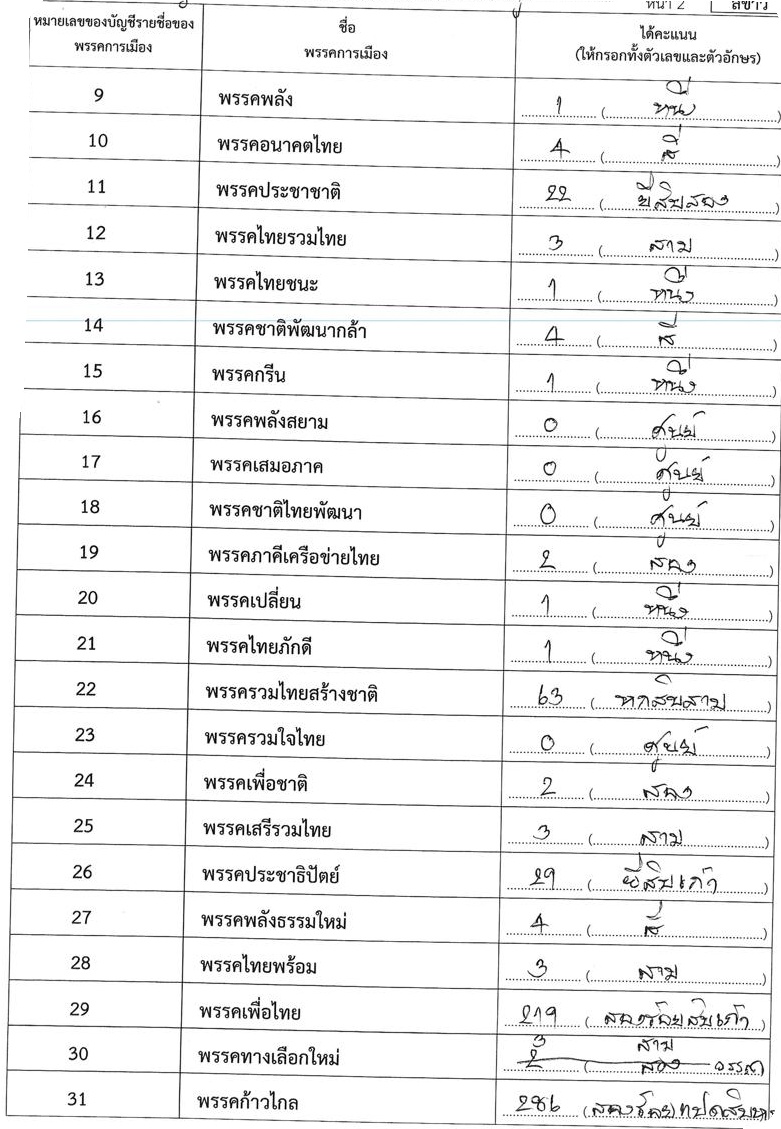 หน้า 2
หมายเลขของบัญชีรายชื่อของพรรคการเมือง ชื่อพรรคการเมือง ได้คะแนน (ให้กรอกทั้งตัวเลขและตัวอักษร)
9 พรรคพลัง 1 (หนึ่ง)
10 พรรคอนาคตไทย 4 (สี่)
11 พรรคประชาชาติ 22 (ยี่สิบสอง)
12 พรรคไทยรวมไทย 3 (สาม)
13 พรรคไทยชนะ 1 (หนึ่ง)
14 พรรคชาติพัฒนากล้า 4 (สี่)
15 พรรคกรีน 1 (หนึ่ง)
16 พรรคพลังสยาม 0 (ศูนย์)
17 พรรคเสมอภาค 0 (ศูนย์)
18 พรรคชาติไทยพัฒนา 0 (ศูนย์)
19 พรรคภาคีเครือข่ายไทย 2 (สอง)
20 พรรคเปลี่ยน 1 (หนึ่ง)
21 พรรคไทยภักดี 1 (หนึ่ง)
22 พรรครวมไทยสร้างชาติ 63 (หกสิบสาม)
23 พรรครวมใจไทย 0 (ศูนย์)
24 พรรคเพื่อชาติ 2 (สอง)
25 พรรคเสรีรวมไทย 3 (สาม)
26 พรรคประชาธิปัตย์ 29 (ยี่สิบเก้า)
27 พรรคพลังธรรมใหม่ 4 (สี่)
28 พรรคไทยพร้อม 3 (สาม)
29 พรรคเพื่อไทย 219 (สองร้อยสิบเก้า)
3 สาม
30 พรรคทางเลือกใหม่ 2 (สอง
31 พรรคก้าวไกล 286 (สองร้อยแปดสิบหก